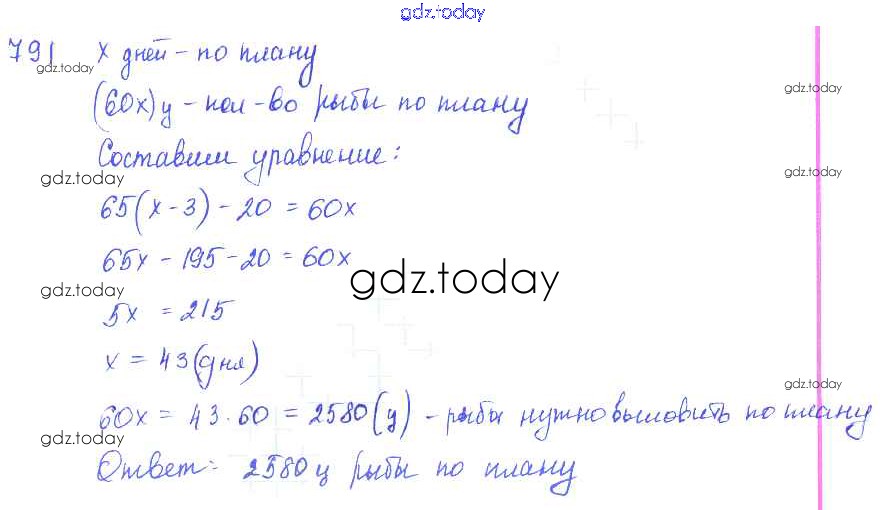 gdz.today
791 x дней - по плану
gdz.today
gdz.today
(60x) ц - кол-во рыбы по плану
Составим уравнение:
gdz.today
gdz.today
65(x-3) - 20 = 60x
65x - 195 - 20 = 60x
gdz.today
gdz.today
5x = 215
x = 43 (дня)
gdz.today
60x = 43·60 = 2580 (ц) - рыбы нужно выловить по плану
gdz.today
Ответ: 2580 ц рыбы по плану